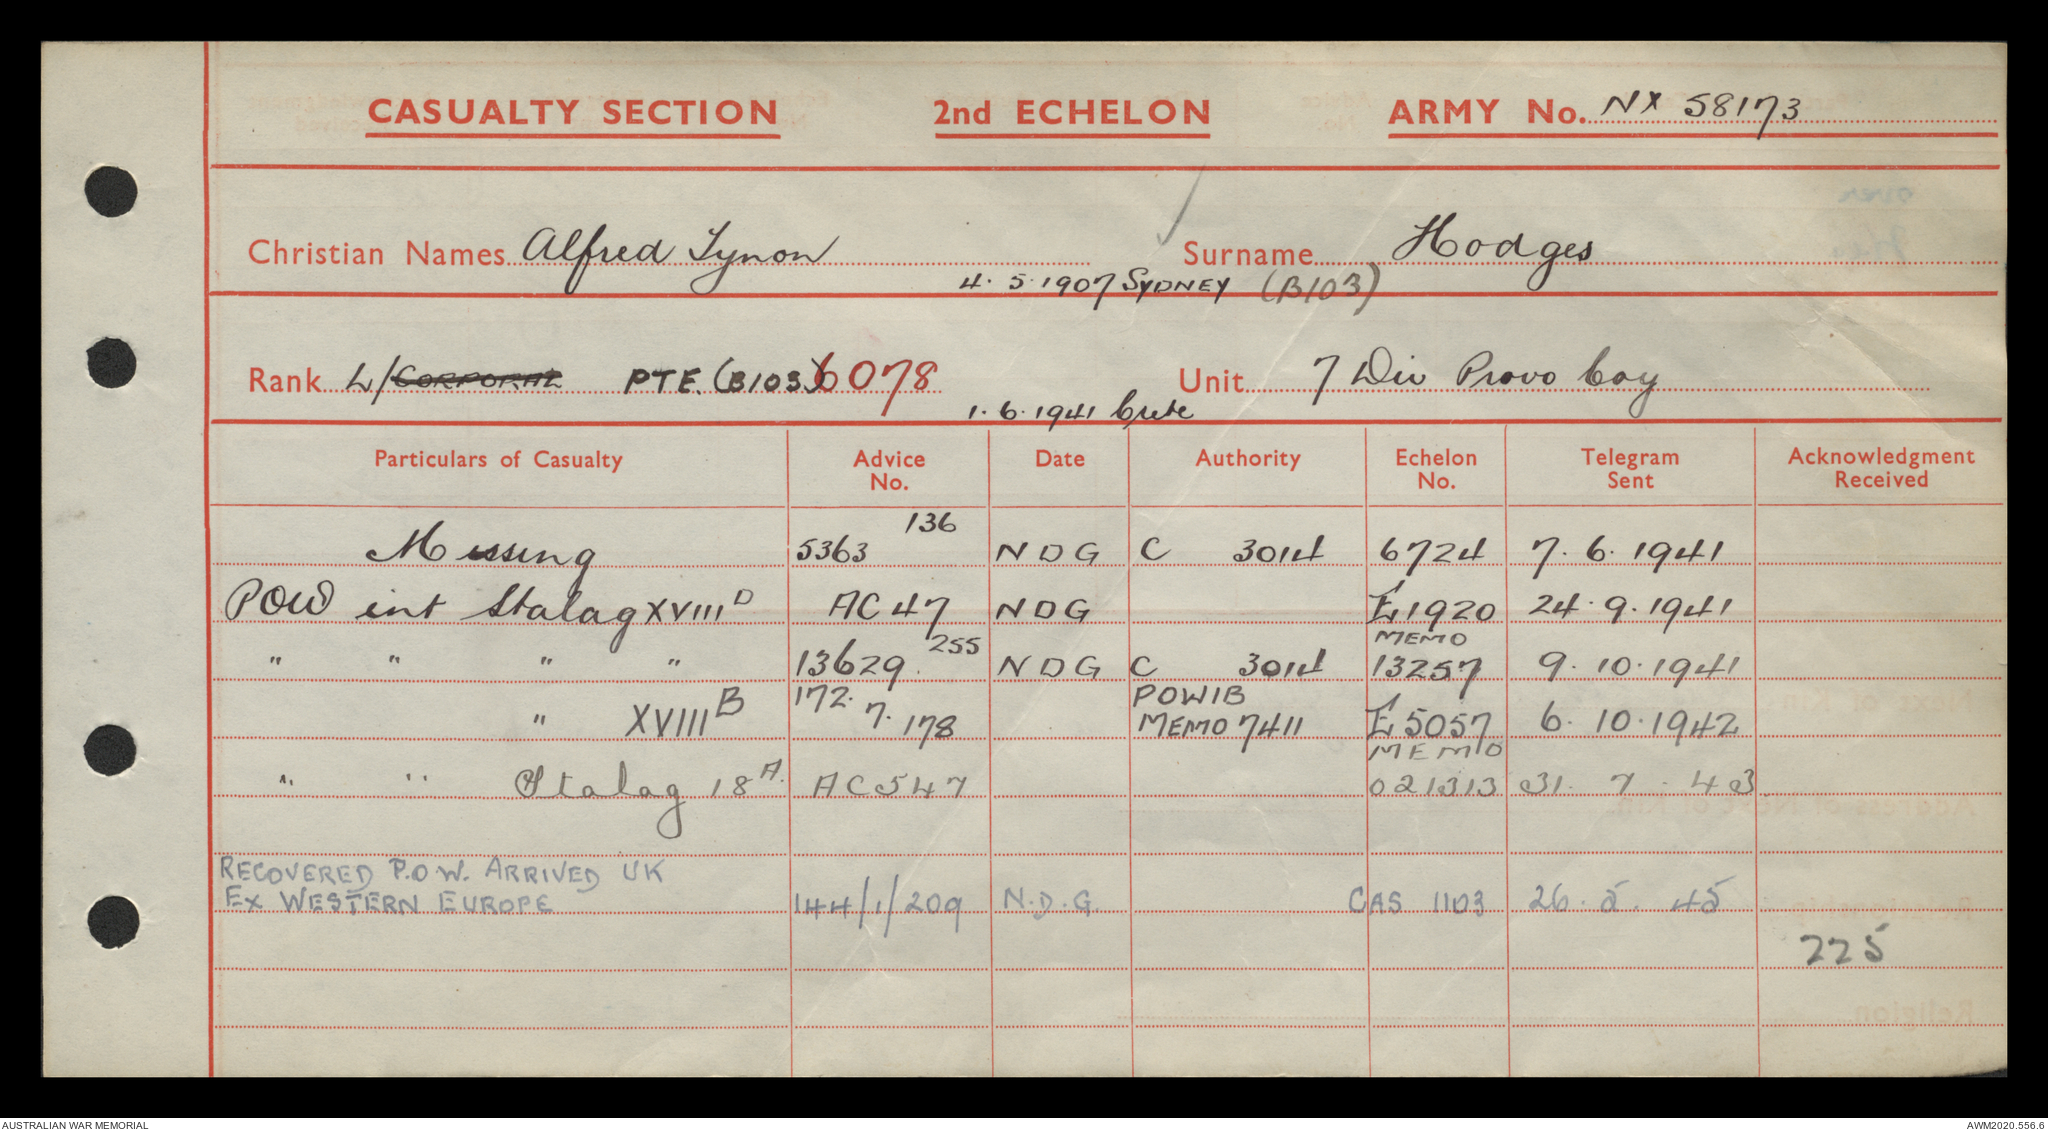 CASUALTY SECTION 2nd ECHELON ARMY No. NX 58173
Christian Names Alfred Tynon Surname Hodges
4.5.1907 SYDNEY (B103)
Rank L/CORPORAL PTE. (B103) 6078 Unit 7 Div Provo Coy
1.6.1941 Crete
Particulars of Casualty Advice No. Date Authority Echelon No. Telegram Sent Acknowledgment Received
136
Missing 5363 NDG C 3014 6724 7.6.1941
POW int Stalag XVIII D AC 47 NDG E1920 24.9.1941
MEMO
255
" " " " 13629 NDG C 3014 13257 9.10.1941
172. POWIB
" XVIII B 7.178 MEMO 7411 E5057 6.10.1942
MEMO
" " Stalag 18 A. AC547 021313 31.7.43
RECOVERED P.O.W. ARRIVED UK
EX WESTERN EUROPE 144/1/209 N.D.G. CAS 1103 26.5.45
225
AUSTRALIAN WAR MEMORIAL AWM2020.556.6